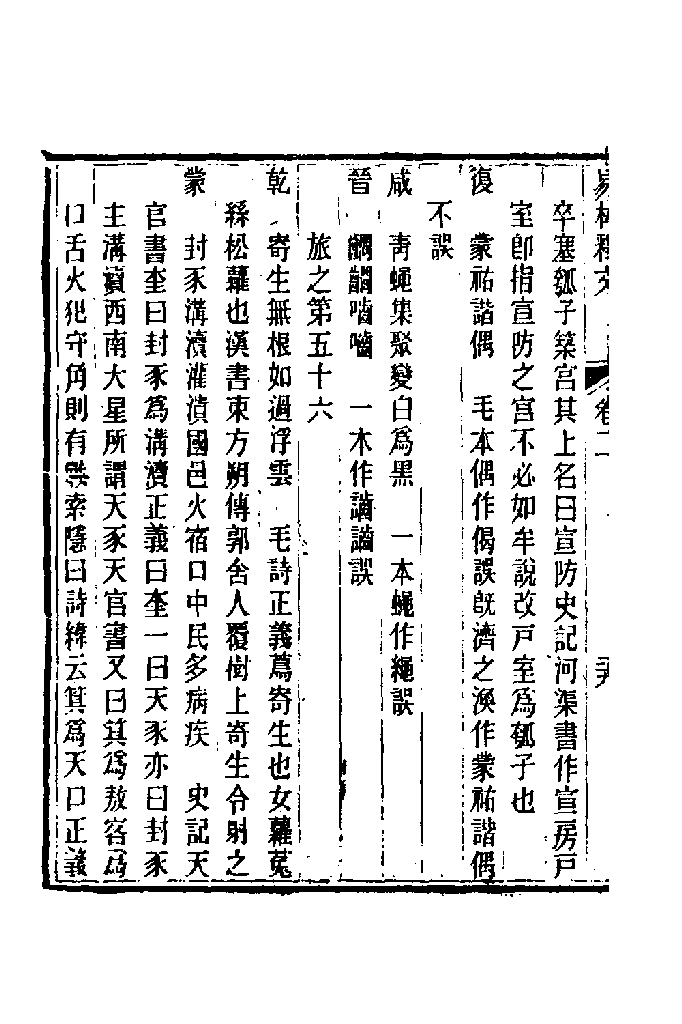 易林釋文 卷二
卒塞瓠子築宮其上名曰宣防史記河渠書作宣房戸
室卽指宣防之宮不必如牟說改戸室爲瓠子也
復 蒙祐諧偶 毛本偶作偈誤旣濟之渙作蒙祐諧偶
不誤
咸 靑蠅集聚變白爲黑 一本蠅作繩誤
晉 齰齰嚙嚙 一木作讁讁誤
旅之第五十六
乾 寄生無根如過浮雲 毛詩正義蔦寄生也女蘿菟
絲松蘿也漢書東方朔傳郭舍人覆樹上寄生令射之
蒙 封豕溝瀆灌潰國邑火宿口中民多病疾 史記天
官書奎曰封豕爲溝瀆正義曰奎一曰天豕亦曰封豕
主溝瀆西南大星所謂天豕天官書又曰箕爲敖客爲
口舌火犯守角則有戰索隱曰詩緯云箕爲天口正義